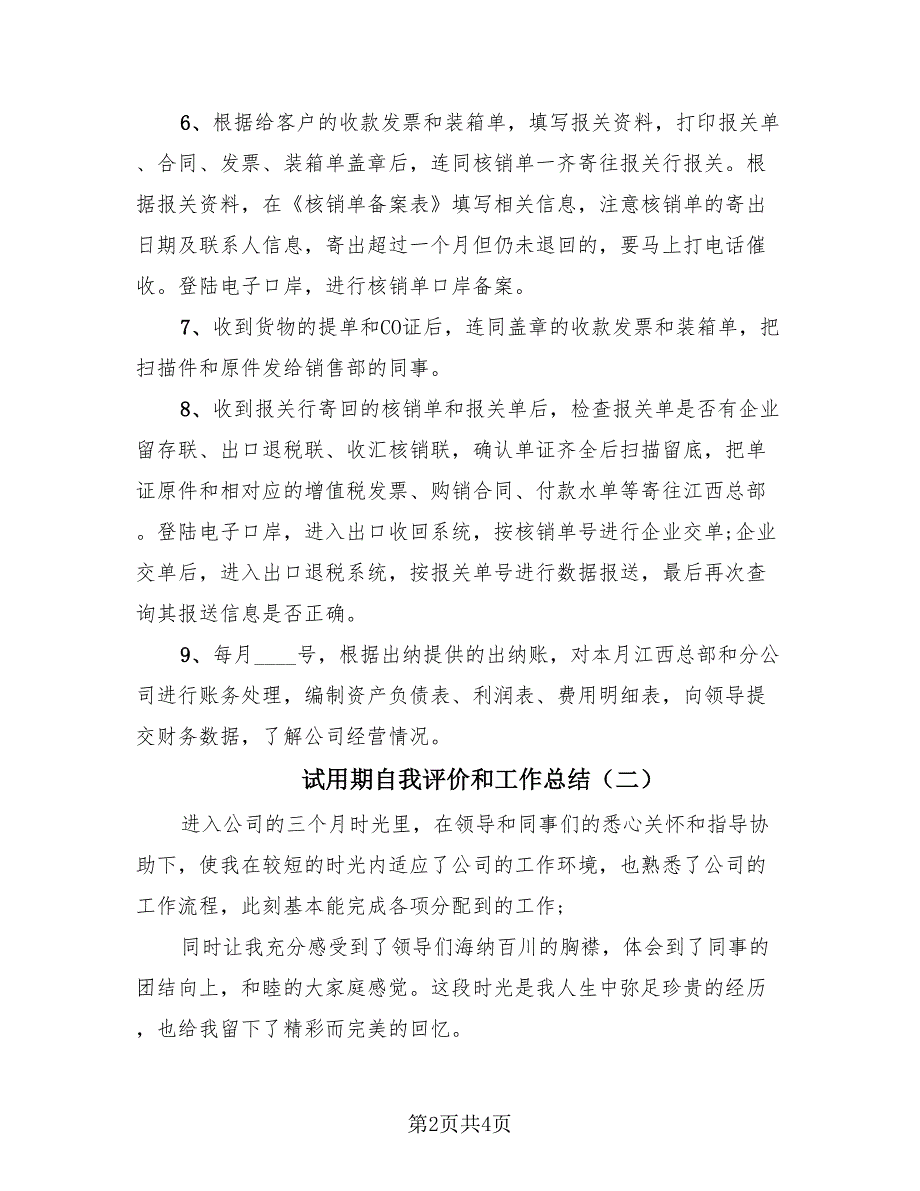 6、根据给客户的收款发票和装箱单，填写报关资料，打印报关单
、合同、发票、装箱单盖章后，连同核销单一齐寄往报关行报关。根
据报关资料，在《核销单备案表》填写相关信息，注意核销单的寄出
日期及联系人信息，寄出超过一个月但仍未退回的，要马上打电话催
收。登陆电子口岸，进行核销单口岸备案。
7、收到货物的提单和CO证后，连同盖章的收款发票和装箱单，把
扫描件和原件发给销售部的同事。
8、收到报关行寄回的核销单和报关单后，检查报关单是否有企业
留存联、出口退税联、收汇核销联，确认单证齐全后扫描留底，把单
证原件和相对应的增值税发票、购销合同、付款水单等寄往江西总部
。登陆电子口岸，进入出口收回系统，按核销单号进行企业交单;企业
交单后，进入出口退税系统，按报关单号进行数据报送，最后再次查
询其报送信息是否正确。
9、每月____号，根据出纳提供的出纳账，对本月江西总部和分公
司进行账务处理，编制资产负债表、利润表、费用明细表，向领导提
交财务数据，了解公司经营情况。
试用期自我评价和工作总结（二）
进入公司的三个月时光里，在领导和同事们的悉心关怀和指导协
助下，使我在较短的时光内适应了公司的工作环境，也熟悉了公司的
工作流程，此刻基本能完成各项分配到的工作;
同时让我充分感受到了领导们海纳百川的胸襟，体会到了同事的
团结向上，和睦的大家庭感觉。这段时光是我人生中弥足珍贵的经历
，也给我留下了精彩而完美的回忆。
第2页共4页